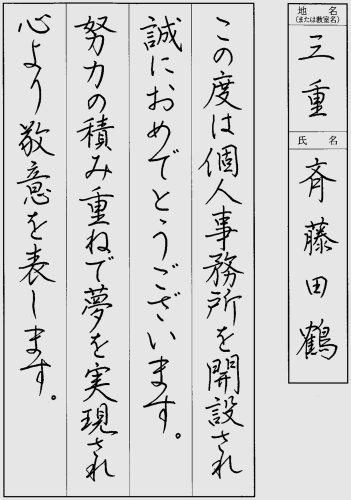 地名
(または教室名)
三重
氏名
斉藤田鶴
この度は個人事務所を開設され
誠におめでとうございます。
努力の積み重ねで夢を実現され
心より敬意を表します。